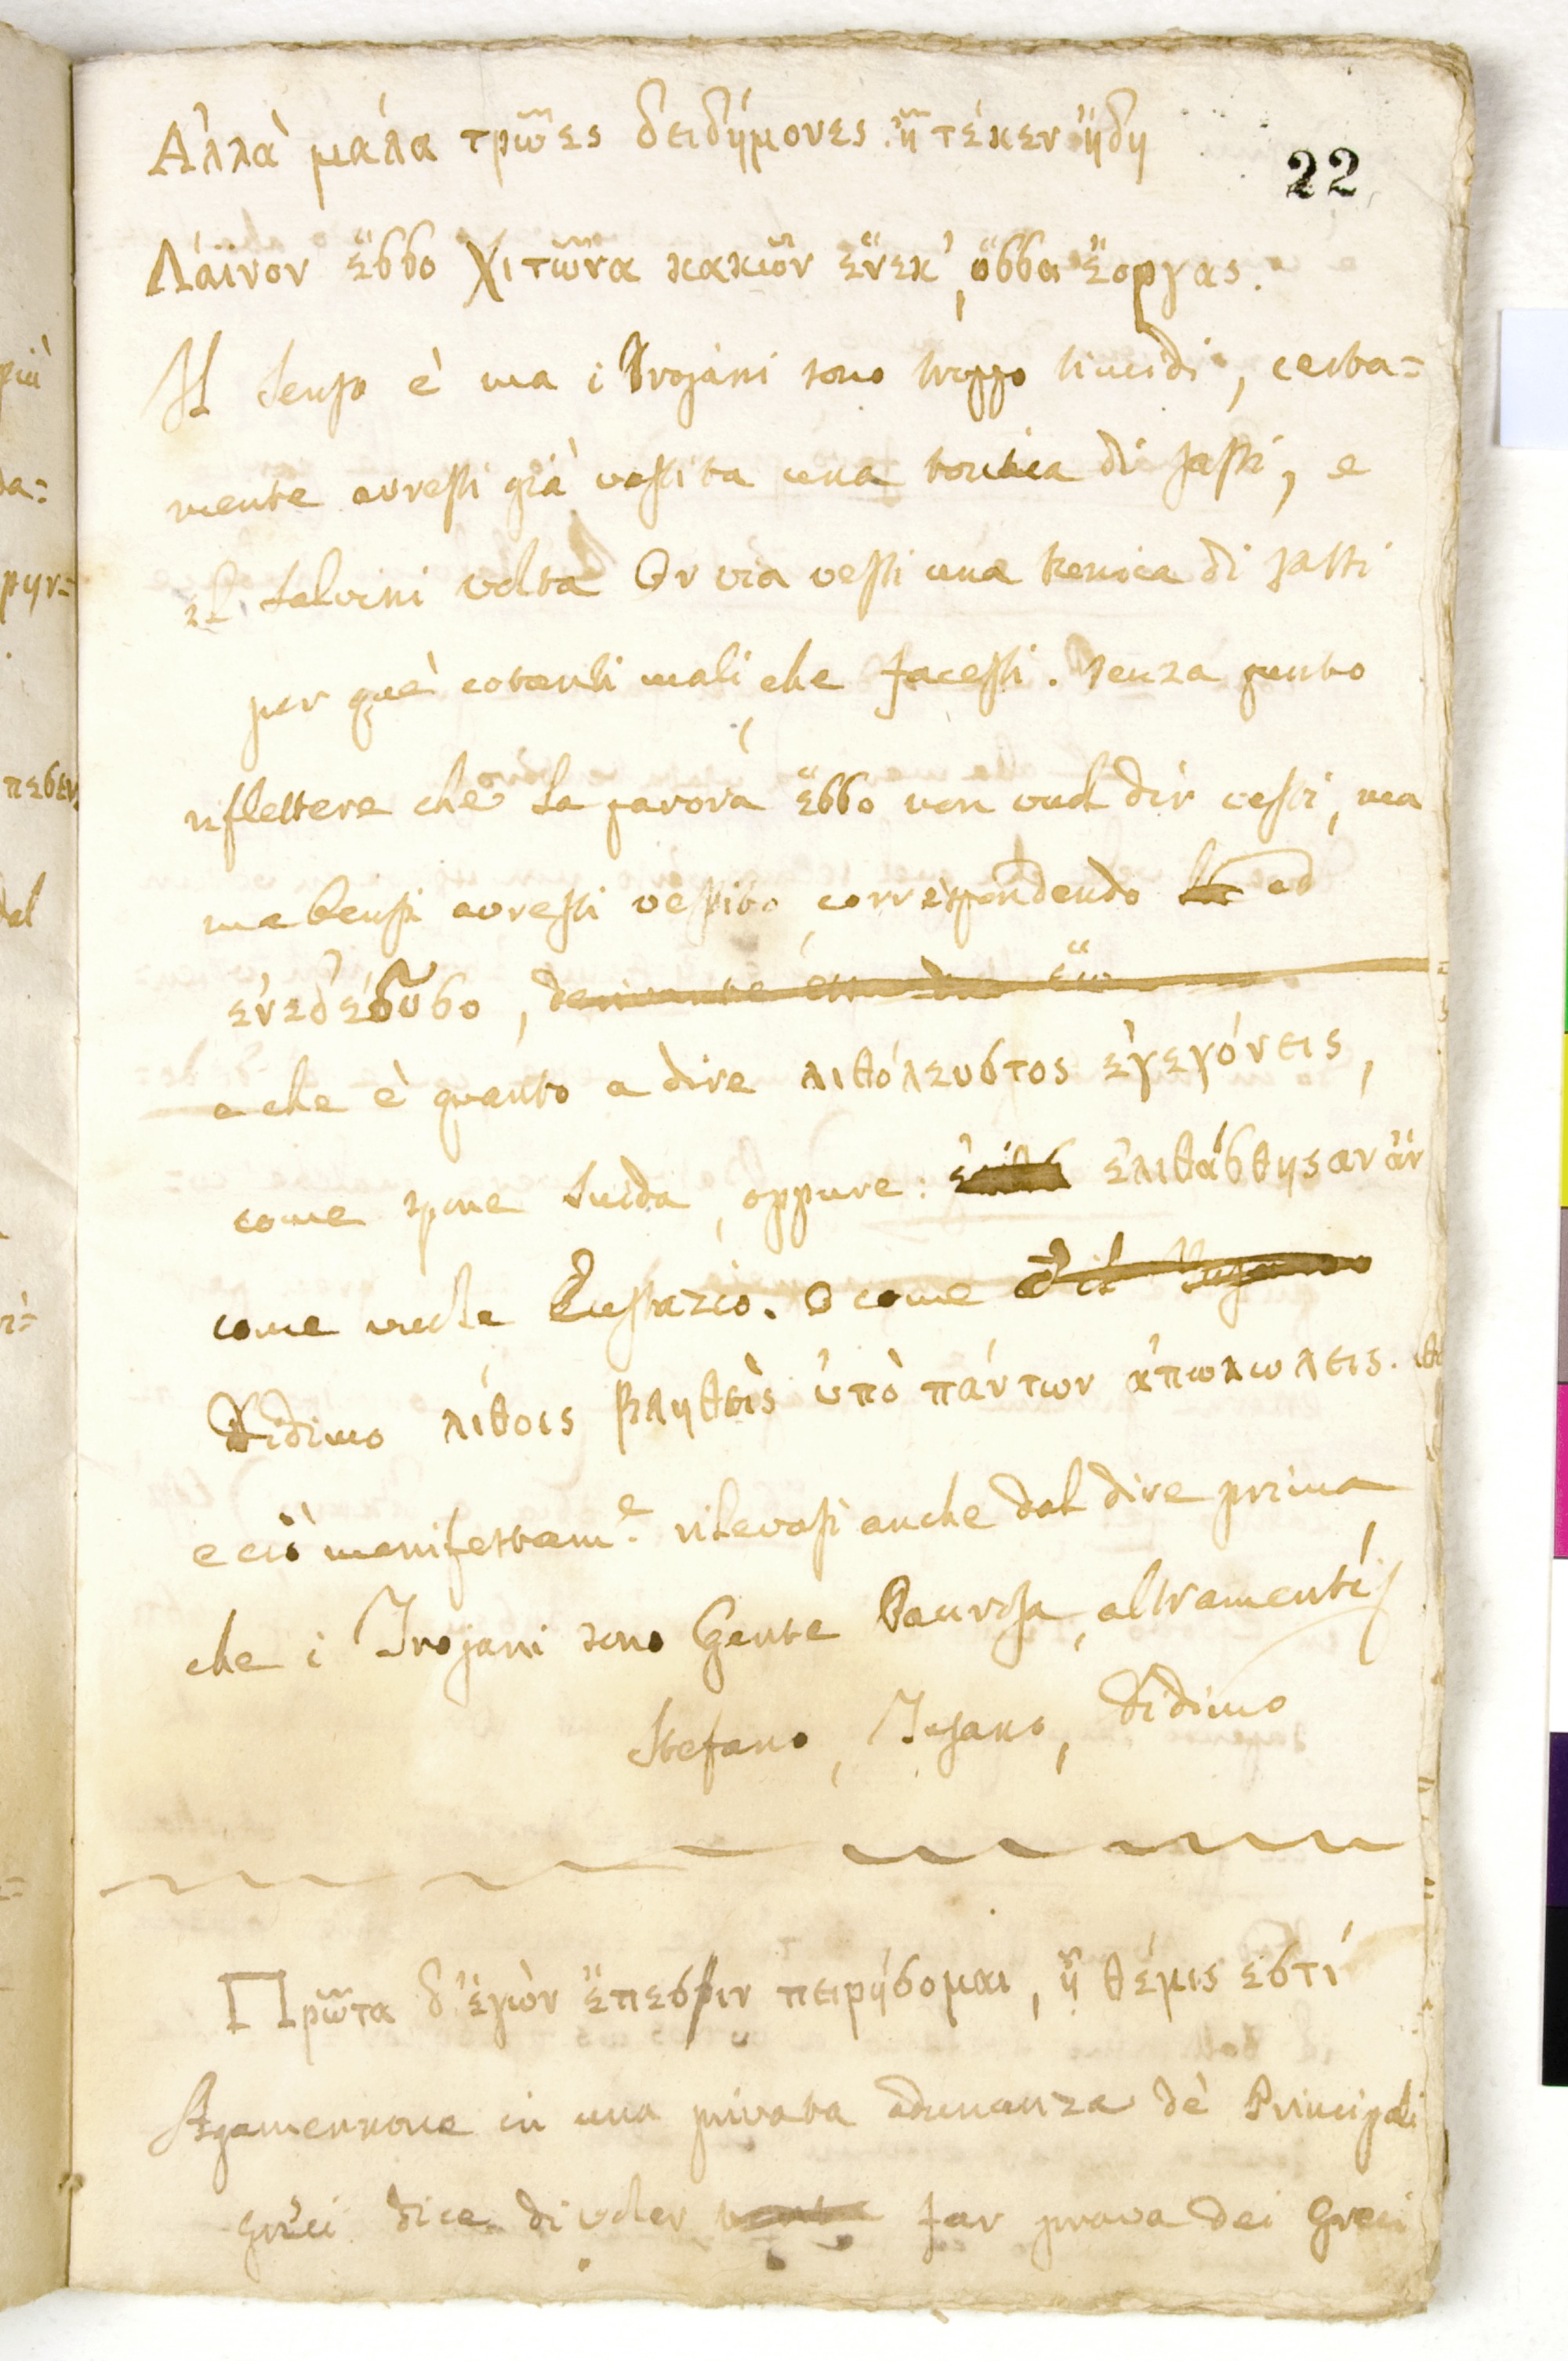 Ἀλλὰ μάλα τρῶες δειδήμονες. ἦ τέκεν ἤδη
22
Λάϊνον ἕσσο χιτῶνα κακῶν ἕνεκ', ὅσσα ἔοργας.
Il senso è ma i Trojani sono troppo timidi, certa=
mente avresti già vestita una tonica di sassi, e
il Salvini volta Or via vesti una tunica di sassi
per què cotanti mali, che facesti. senza punto
riflettere che la parola ἕσσο non vuol dir vesti, ma
ma bensi avresti vestito, correspondendo ad
ἐνεδέδυσο,
e che è quanto a dire λιθόλευστος ἐγεγόνεις,
come spone Suida, oppure: ἐλιθάσθησαν ἂν
come vuole Eustazio. O come
Didimo λίθοις βληθεὶς ὑπὸ πάντων ἀπωλώλεις.
e ciò manifestam.e rilevasi anche dal dire prima
che i Trojani sono Gente Paurosa, altramenti
Stefano, Didimo
Πρῶτα δ' ἐγὼν ἔπεσσιν πειρήσομαι, ἣ θέμις ἐστί
Agamennone in una privata adunanza de' Principali
Greci dice di voler far prova dei Greci